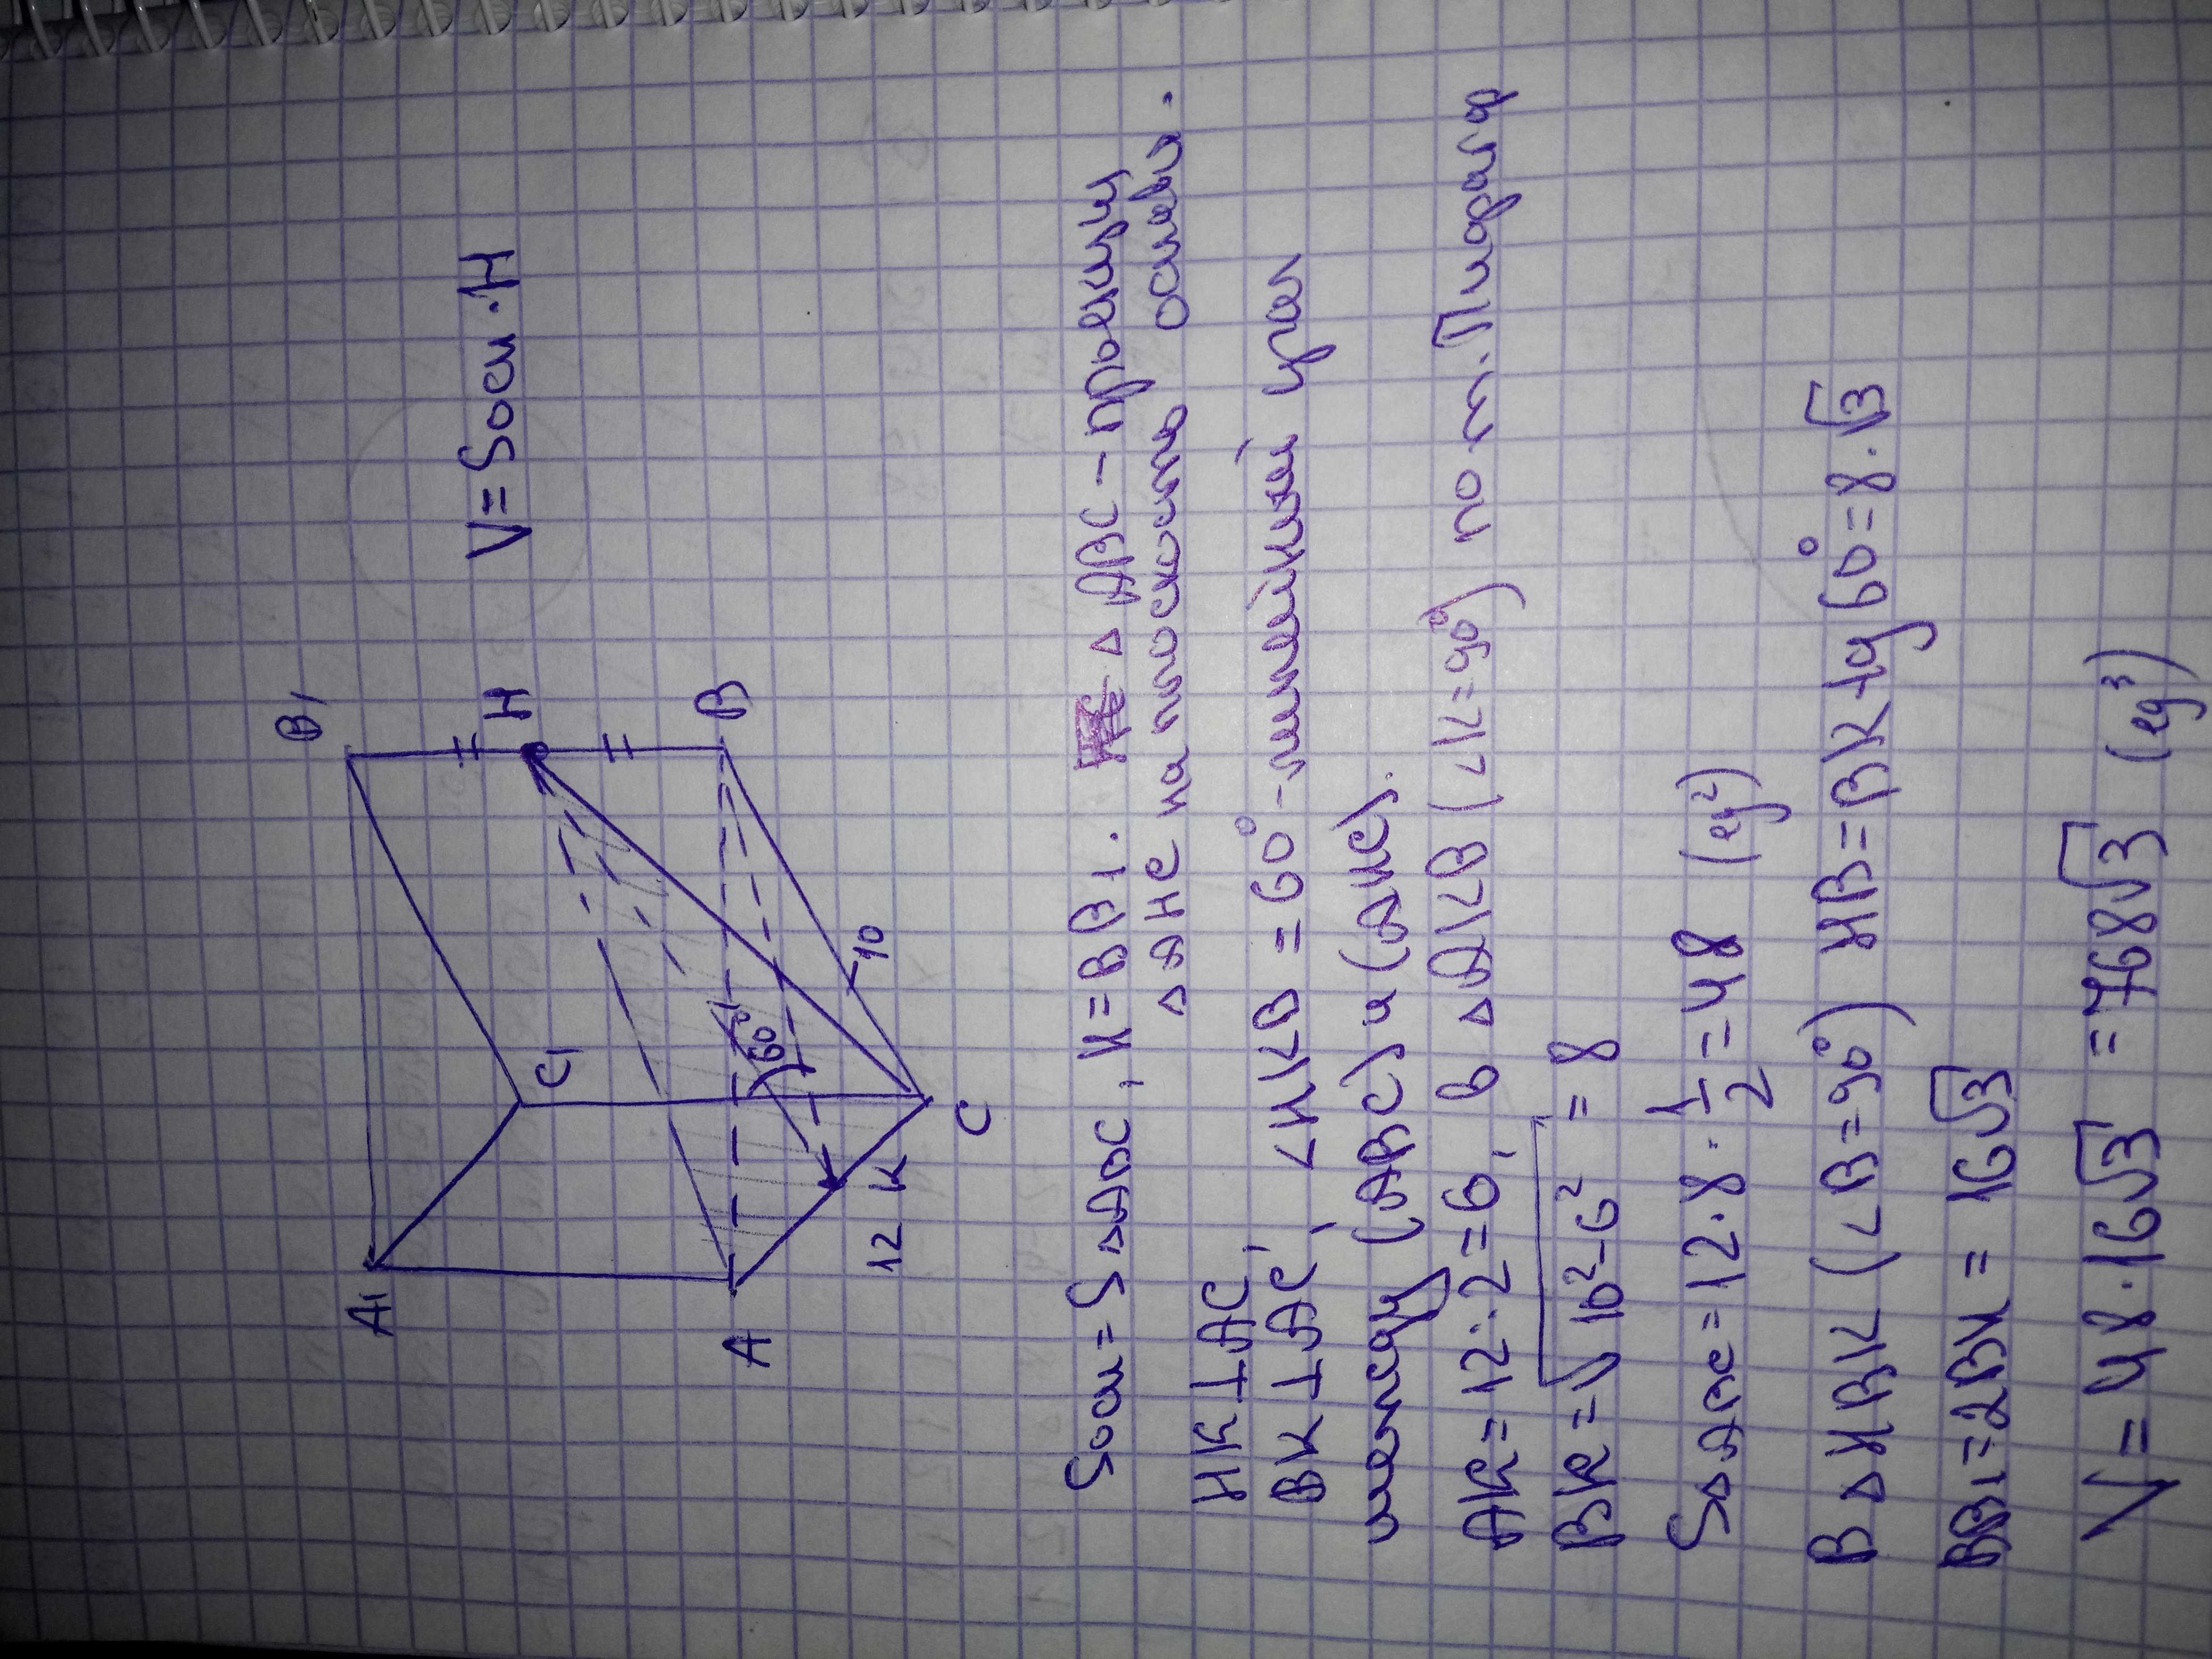 B1
H
V = Sосн · H
A1
C1
B
60°
A
10
12
K
C
Sосн = S△ABC, H = BB1. △ABC – проекция
△AHC на плоскость основан.
HK ⊥ AC,
BK ⊥ AC, ∠HKB = 60° – линейный угол
между (ABC) и (AHC).
AK = 12 : 2 = 6, в △AKB (∠K = 90°) по т. Пифагор
BK = √10² – 6² = 8
S△ABC = 12 · 8 · 1/2 = 48 (ед²)
В △HBK (∠B = 90°) HB = BK tg 60° = 8 · √3
BB1 = 2BH = 16√3
V = 48 · 16√3 = 768√3 (ед³)